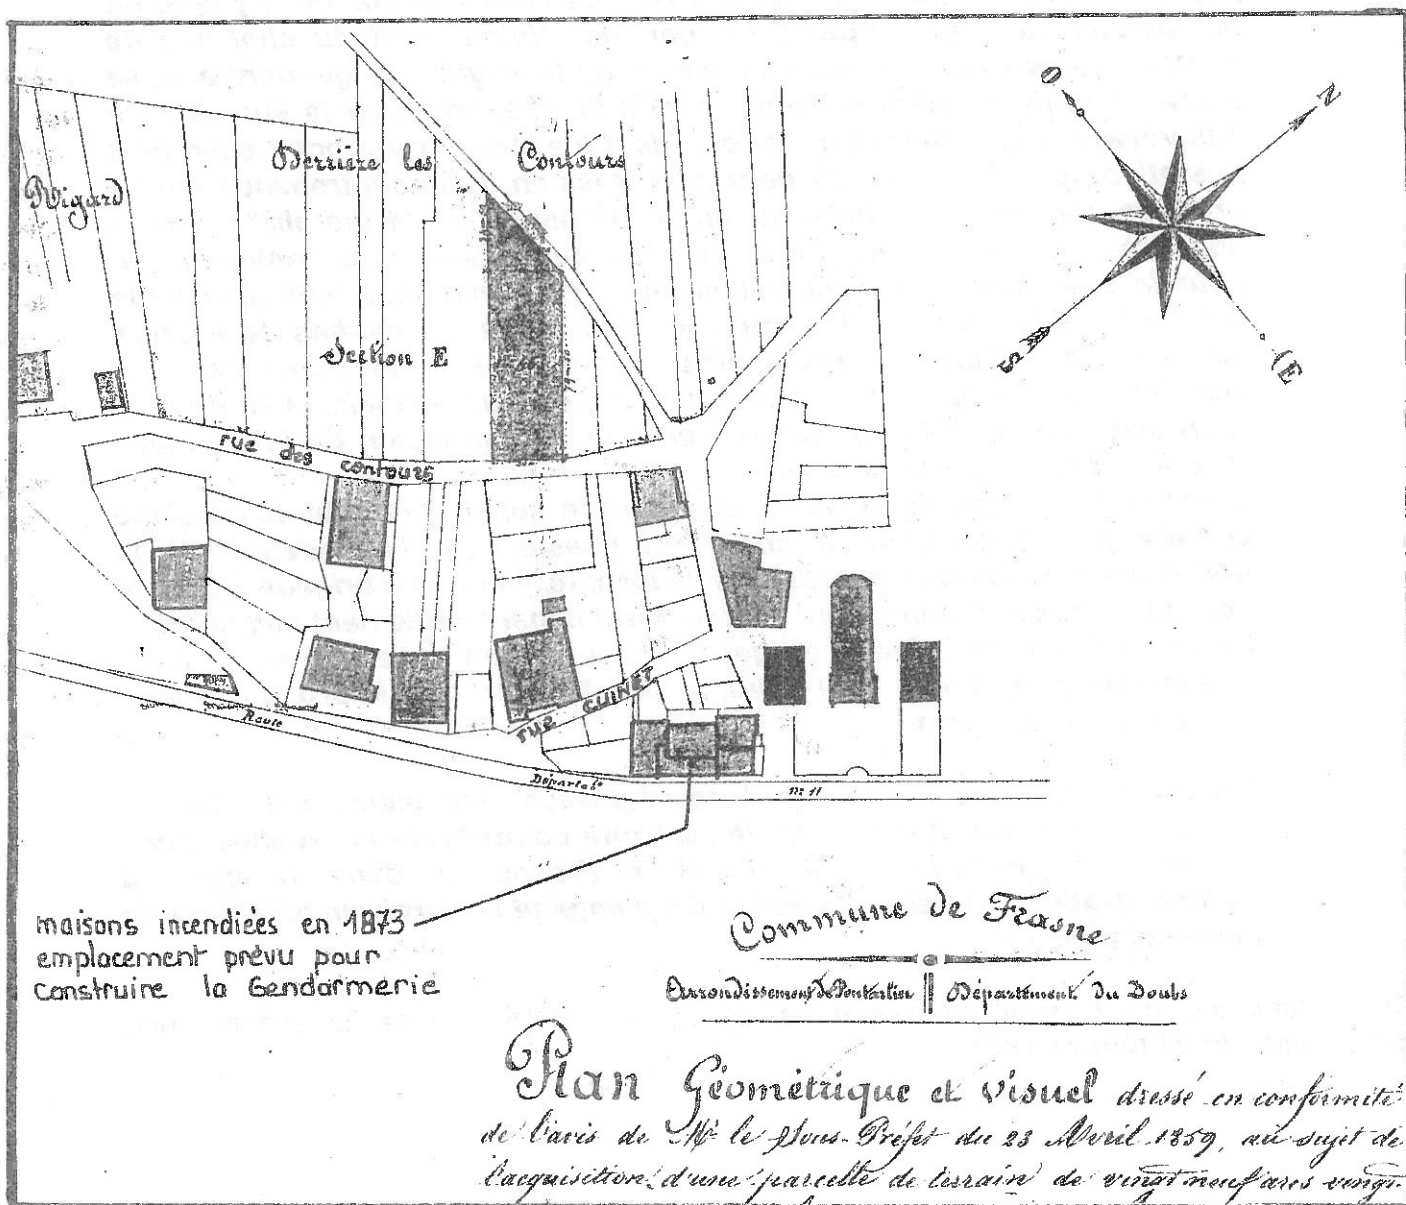 O
N
S
E
Derrière les Contours
Rigard
Section E
rue des contours
rue GUINET
Route
Départale
N° 11
maisons incendiées en 1873
emplacement prévu pour
construire la Gendarmerie
Commune de Frasne
Arrondissement de Pontarlier
Département du Doubs
Plan Géométrique et visuel dressé en conformité
de l'avis de Mr le Sous-Préfet du 23 Avril 1859, au sujet de
l'acquisition d'une parcelle de terrain de vingt neuf ares vingt-